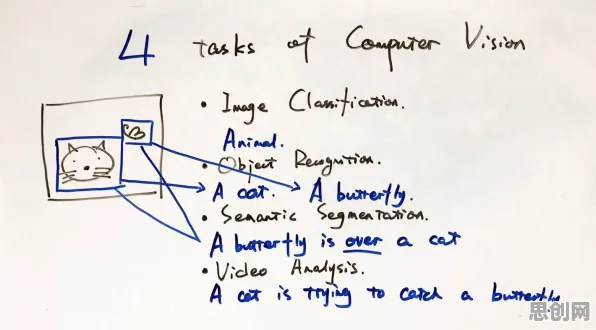 4 tasks of Computer Vision
• Image Classification.
Animal.
• Object Recognition.
A cat. A butterfly.
• Semantic Segmentation.
A butterfly is over a cat
• Video Analysis.
A cat is trying to catch a butterfly
思创网